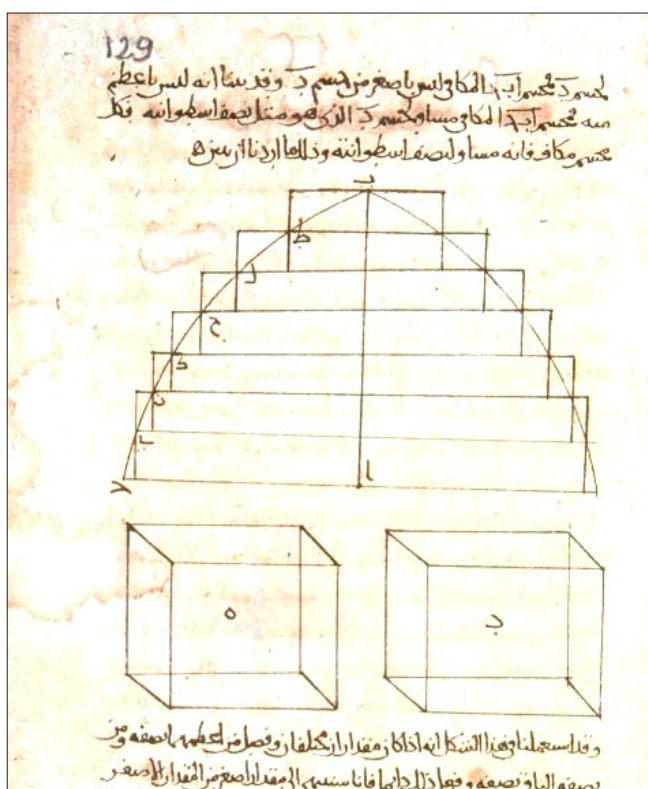 129
لمجسم د فمجسم ا ب ج المكافى ليس باصغر من مجسم د وقد بينا انه ليس باعظم
منه فمجسم ا ب ج المكافى مساو لمجسم د الذى هو مثل نصف اسطوانته فكل
مجسم مكاف فانه مساو لنصف اسطوانته وذلك ما اردنا ان نبين ه
ط
ل
ح
ا
ه
وقد استعملنا فى هذا الشكل انه اذا كان مقداران مختلفان وفصل من اعظمهما نصفه ومن
نصفه الباقى نصفه وفعل ذلك دائما فانا سننتهى الى مقدار اصغر من المقدار الاصغر